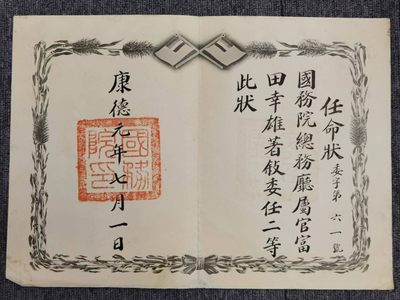 任命狀 委字第六一號
國務院總務廳屬官富
田幸雄著敍委任二等
此狀
康德元年七月一日
國務院印